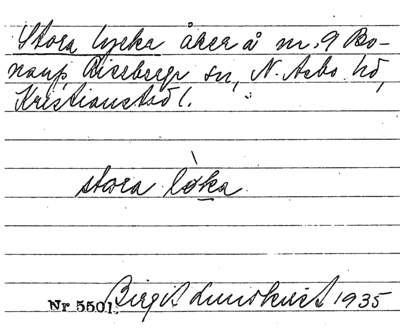 Stora lycka åker å nr. 9 Bo-
narp, Riseberga sn, N. Åsbo hd,
Kristianstad l.
stora lỳka
Nr 5501. Birgit Lundkvist 1935